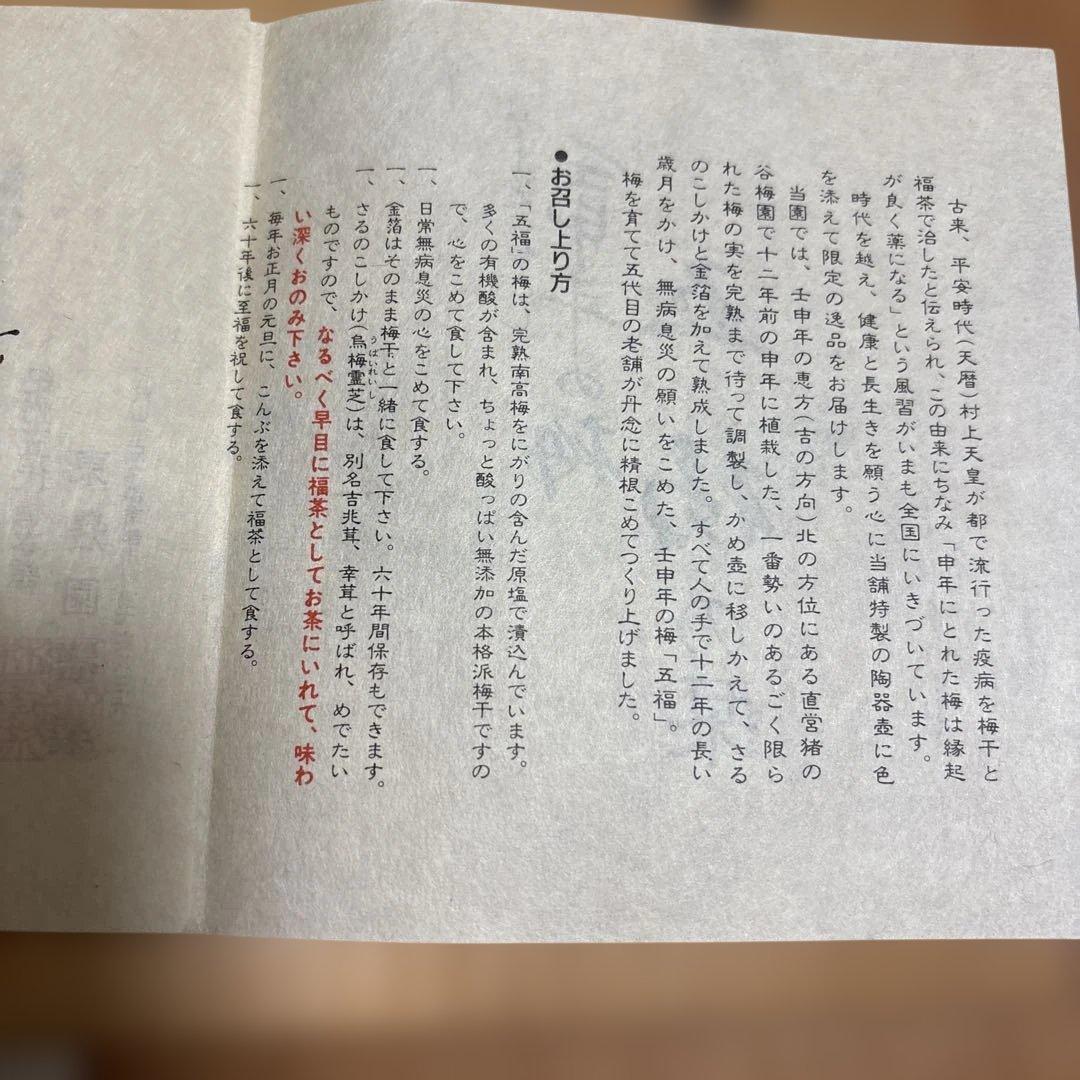 古来、平安時代(天暦)村上天皇が都で流行った疫病を梅干と
福茶で治したと伝えられ、この由来にちなみ「申年にとれた梅は縁起
が良く薬になる」という風習がいまも全国にいきづいています。
時代を越え、健康と長生きを願う心に当舗特製の陶器壺に色
を添えて限定の逸品をお届けします。
当園では、壬申年の恵方(吉の方向)北の方位にある直営猪の
谷梅園で十二年前の申年に植栽した、一番勢いのあるごく限ら
れた梅の実を完熟まで待って調製し、かめ壺に移しかえて、さる
のこしかけと金箔を加えて熟成しました。すべて人の手で十二年の長い
歳月をかけ、無病息災の願いをこめた、壬申年の梅「五福」。
梅を育てて五代目の老舗が丹念に精根こめてつくり上げました。
●お召し上り方
一、「五福」の梅は、完熟南高梅をにがりの含んだ原塩で漬込んでいます。
多くの有機酸が含まれ、ちょっと酸っぱい無添加の本格派梅干ですの
で、心をこめて食して下さい。
一、日常無病息災の心をこめて食する。
一、金箔はそのまま梅干と一緒に食して下さい。六十年間保存もできます。
一、さるのこしかけ(烏梅霊芝)は、別名吉兆茸、幸茸と呼ばれ、めでたい
うばいれいし
ものですので、なるべく早目に福茶としてお茶にいれて、味わ
い深くおのみ下さい。
一、毎年お正月の元旦に、こんぶを添えて福茶として食する。
一、六十年後に至福を祝して食する。